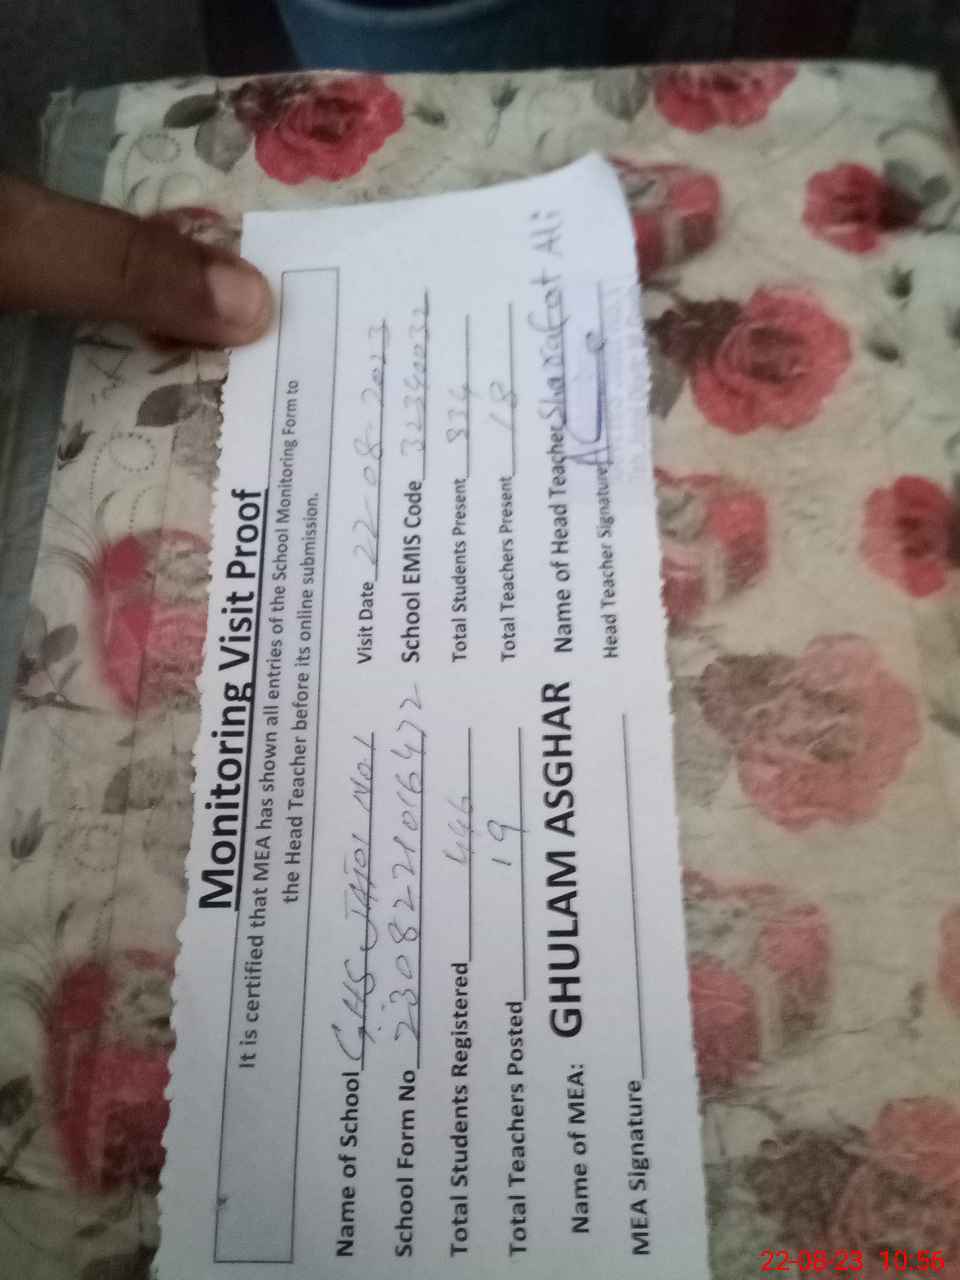 Monitoring Visit Proof
It is certified that MEA has shown all entries of the School Monitoring Form to
the Head Teacher before its online submission.
Name of School GHS JATOI NO.1 Visit Date 22-08-2023
School Form No 2308221016472 School EMIS Code 32340032
Total Students Registered 446 Total Students Present 334
Total Teachers Posted 19 Total Teachers Present 18
Name of MEA: GHULAM ASGHAR Name of Head Teacher Sharafat Ali
MEA Signature Head Teacher Signature
22-08-23 10:56